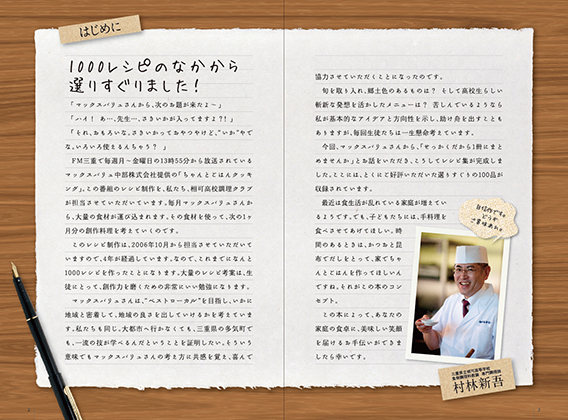 はじめに
1000レシピのなかから
選りすぐりました!
「マックスバリュさんから、次のお題が来たよ〜」
「ハイ! あー、先生…、さきいかが入ってますよ?!」
「それ、おもろいな。さきいかっておやつやけど、“いか”やで
な。いろいろ使えるんちゃう? 」
FM三重で毎週月〜金曜日の13時55分から放送されている
マックスバリュ中部株式会社提供の「ちゃんとごはんクッキ
ング」。この番組のレシピ制作を、私たち、相可高校調理クラブ
が担当させていただいています。毎月マックスバリュさんか
ら、大量の食材が運び込まれます。その食材を使って、次の1ヶ
月分の創作料理を考えていくのです。
このレシピ制作は、2006年10月から担当させていただいて
いますので、4年が経過しています。なので、これまでになんと
1000レシピを作ったことになります。大量のレシピ考案は、生
徒にとって、創作力を磨くための非常にいい勉強になります。
マックスバリュさんは、“ベストローカル”を目指し、いかに
地域と密着して、地域の良さを出していけるかを考えていま
す。私たちも同じ。大都市へ行かなくても、三重県の多気町で
も、一流の技が学べるんだということを証明したい。そういう
意味でもマックスバリュさんの考え方に共感を覚え、喜んで
協力させていただくことになったのです。
旬を取り入れ、郷土色のあるものは? そして高校生らしい
斬新な発想を活かしたメニューは? 苦しんでいるようなら
私が基本的なアイデアと方向性を示し、助け舟を出すことも
ありますが、毎回生徒たちは一生懸命考えています。
今回、マックスバリュさんから、「せっかくだから1冊にまと
めませんか」とお話をいただき、こうしてレシピ集が完成しま
した。ここには、とくにご好評いただいた選りすぐりの100品が
収録されています。
最近は食生活が乱れている家庭が増えてい
るようです。でも、子どもたちには、手料理を
食べさせてあげてほしい。時
間のあるときは、かつおと昆
布でだしをとって、家でちゃ
んとごはんを作ってほしいん
ですね。それがこの本のコン
セプト。
この本によって、あなたの
家庭の食卓に、美味しい笑顔
を届けるお手伝いができま
したら幸いです。
自信作です。
どうぞ、
ご賞味あれ!!
三重県立相可高等学校
食物調理科教諭 専門調理師
村林新吾